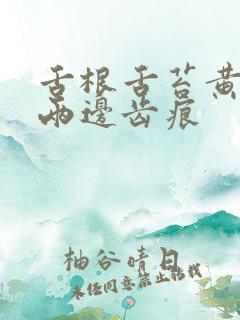 舌根舌苔黄
兩邊齿痕
柚谷晴日
未经同意禁止转载